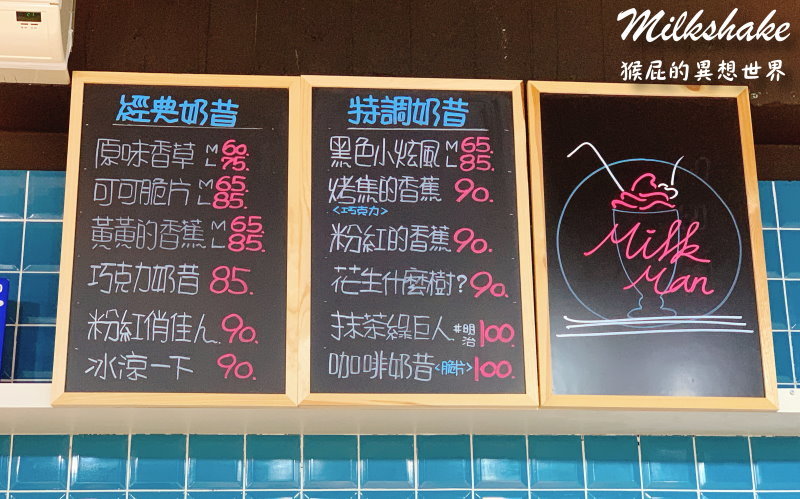 Milkshake
猴屁的異想世界
經典奶昔
原味香草 M 60. L 75.
可可脆片 M 65. L 85.
黃黃的香蕉 M 65. L 85.
巧克力奶昔 85.
粉紅俏佳ㄦ 90.
冰涼一下 90.
特調奶昔
黑色小炫風 M 65. L 85.
烤焦的香蕉 90.
<巧克力>
粉紅的香蕉 90.
花生什麼樹? 90.
抹茶綠巨人 #明治 100.
咖啡奶昔 <脆片> 100.
Milk
Man